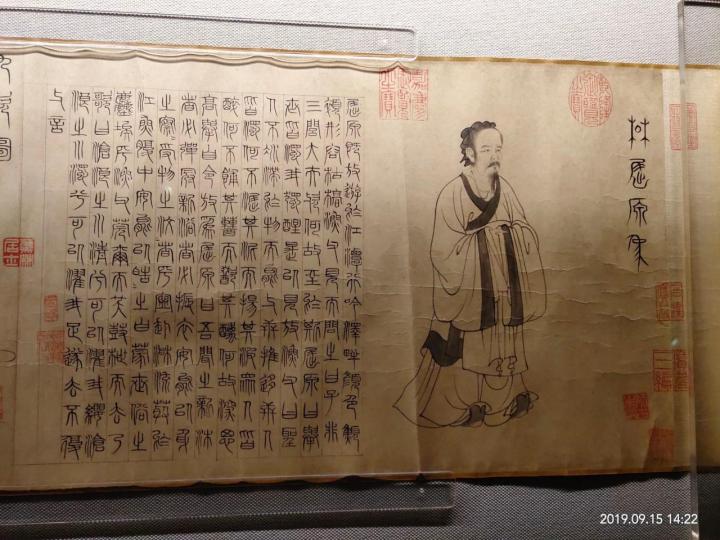 屈原像
屈原既放遊於江潭行吟澤畔顏色顦
顇形容枯槁漁父見而問之曰子非
三閭大夫歟何故至於斯屈原曰舉
世皆濁我獨醒是以見放漁父曰聖
人不凝滯於物而能與世推移世人
皆濁何不淈其泥而揚其波眾人皆
醉何不餔其糟而歠其醨何故深思
高舉自令放為屈原曰吾聞之新沐
者必彈冠新浴者必振衣安能以身
之察受物之汶者乎寧赴湘流葬於
江魚腹中安能以皓之白蒙世俗之
塵埃乎漁父莞爾而笑鼓枻而去乃
歌曰滄浪之水清兮可以濯我纓滄
浪之水濁兮可以濯我足遂去不復
與言
九歌圖
2019.09.15 14:22